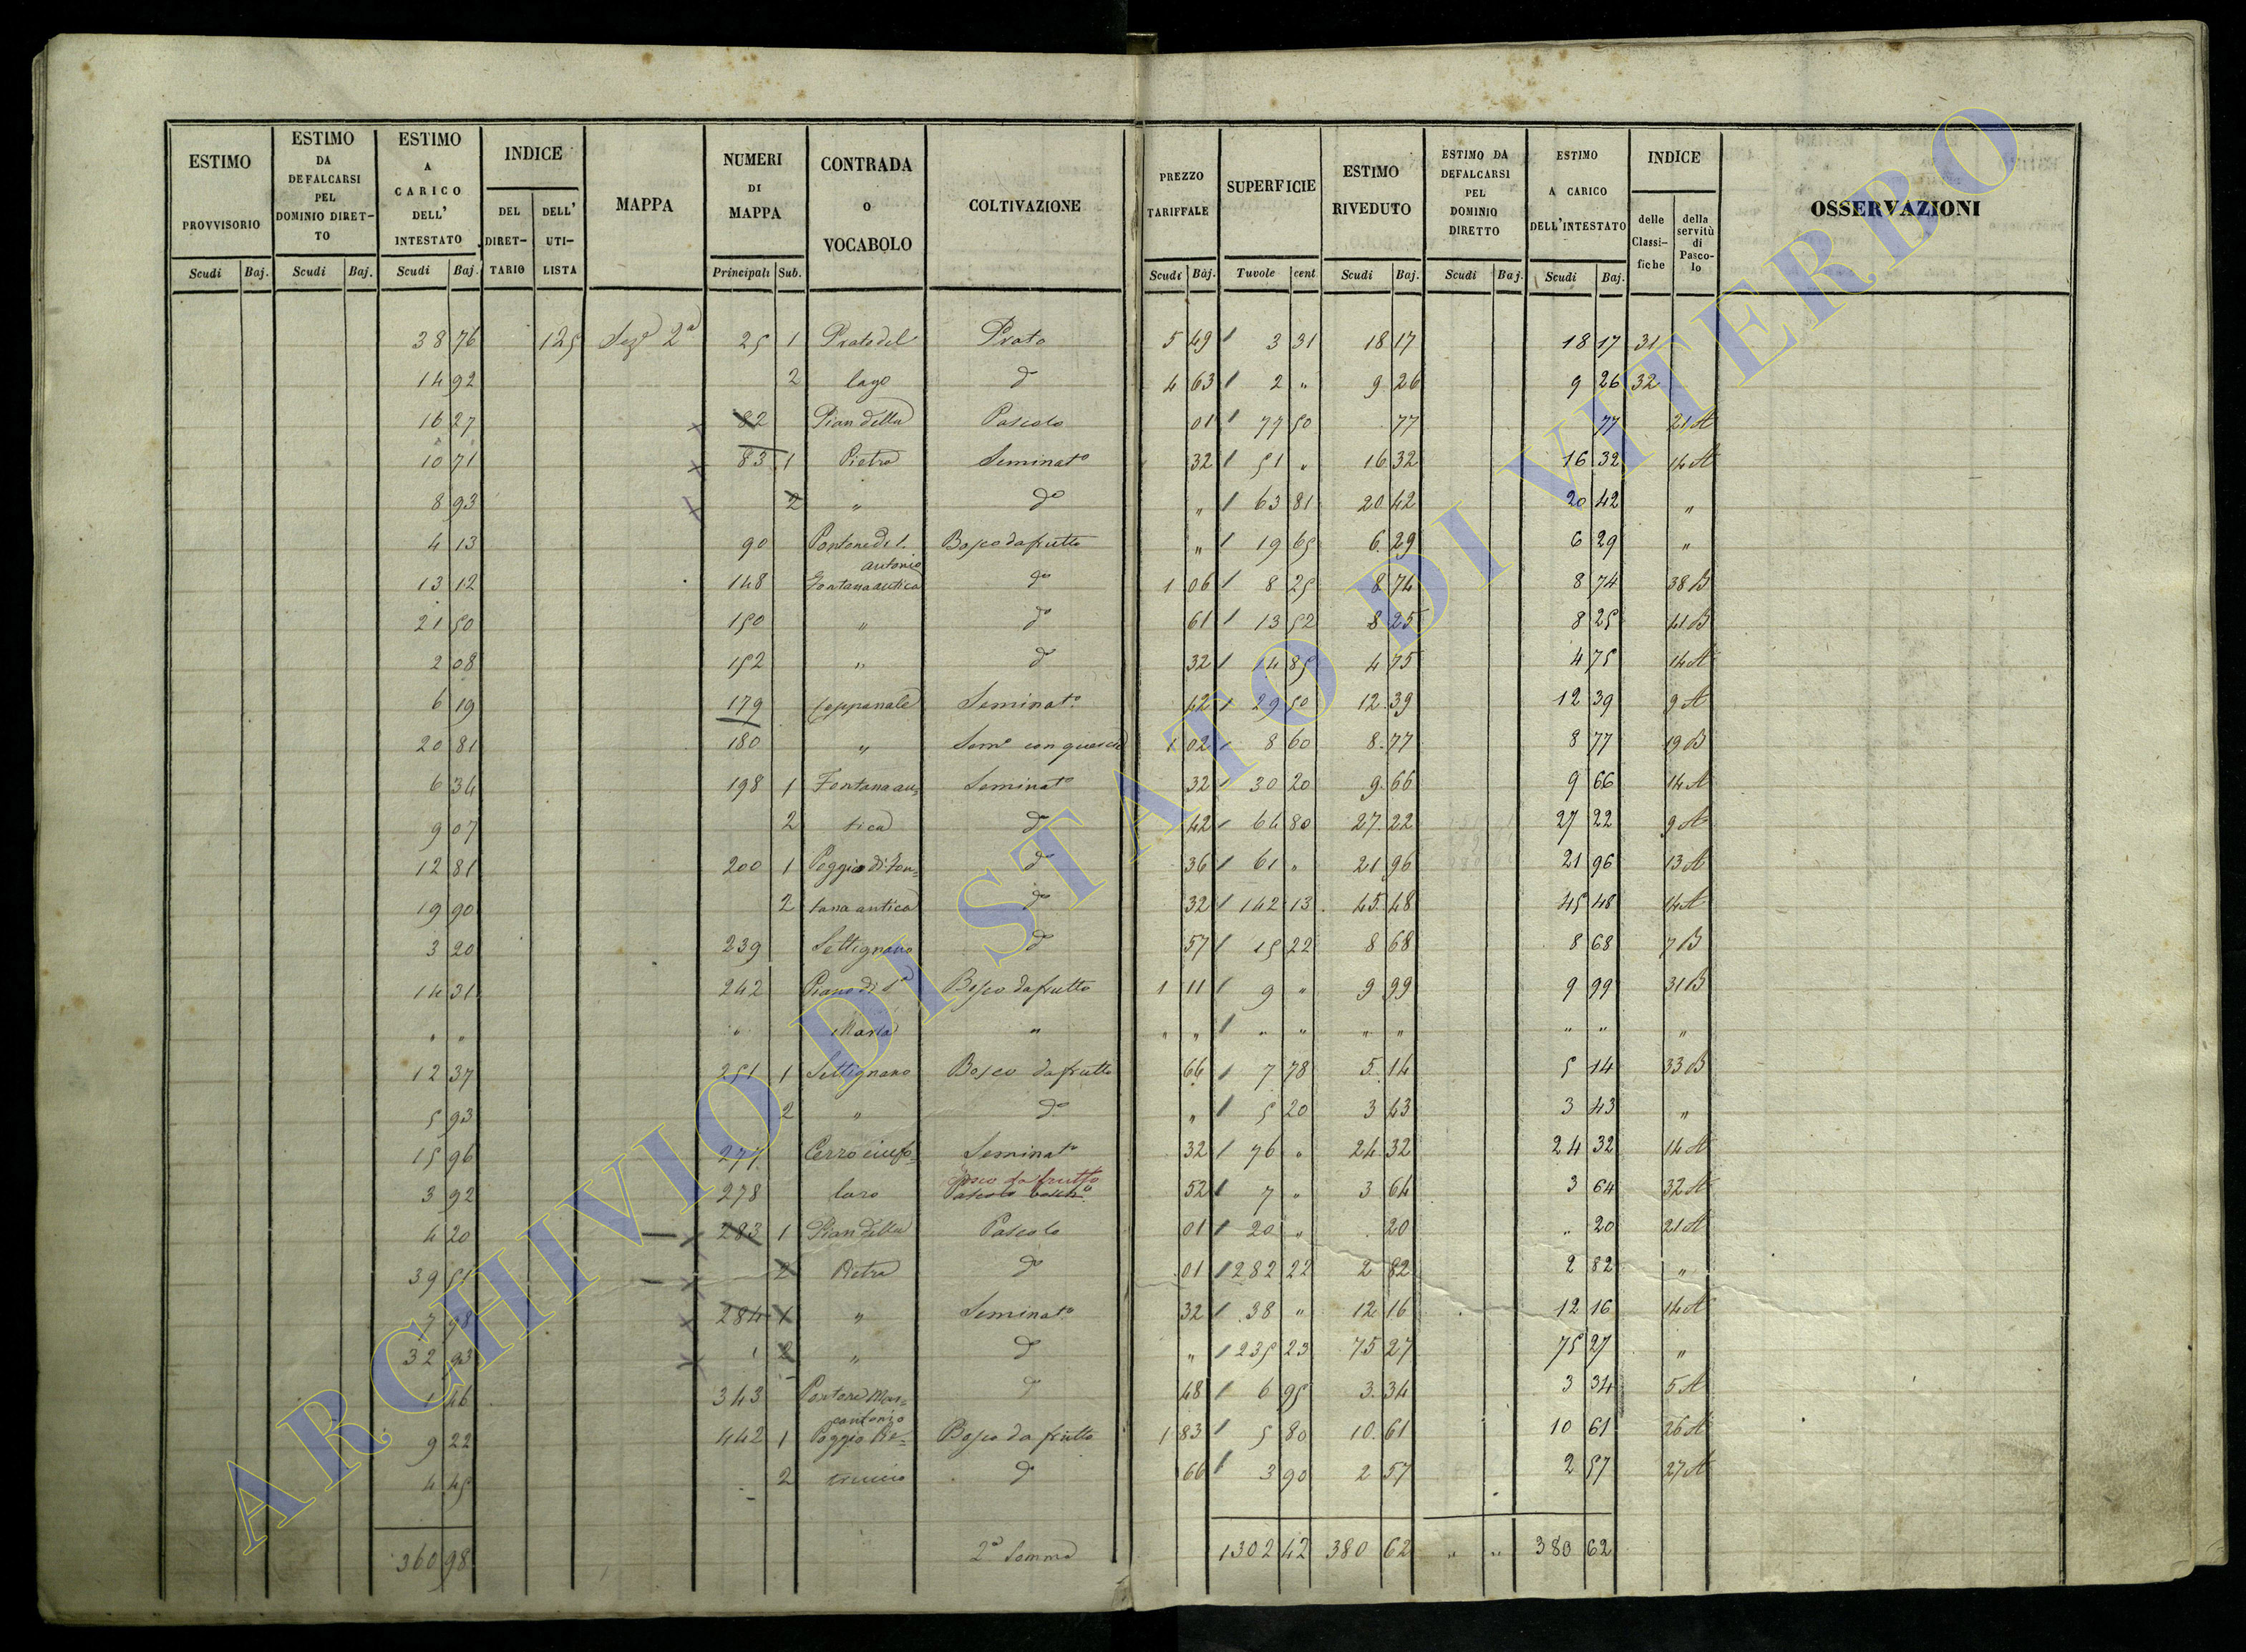 ESTIMO PROVVISORIO Scudi Baj.
ESTIMO DA DEFALCARSI PEL DOMINIO DIRET-TO Scudi Baj.
ESTIMO A CARICO DELL' INTESTATO Scudi Baj.
INDICE DEL DIRET-TARIO DELL' UTI-LISTA
MAPPA
NUMERI DI MAPPA Principali Sub.
CONTRADA O VOCABOLO
COLTIVAZIONE
PREZZO TARIFFALE Scudi Baj.
SUPERFICIE Tavole cent
ESTIMO RIVEDUTO Scudi Baj.
ESTIMO DA DEFALCARSI PEL DOMINIO DIRETTO Scudi Baj.
ESTIMO A CARICO DELL'INTESTATO Scudi Baj.
INDICE delle Classi-fiche della servitù di Pasco-lo
OSSERVAZIONI
38 76 125 Sezᵉ 2ᵃ 25 1 Prato del Prato 5 49 3 31 18 17 18 17 31
14 92 2 lago dº 4 63 2 " 9 26 9 26 32
16 27 82 Pian della Pascolo 01 77 50 77 77 21 A
10 71 83 1 Pietra Seminatº 32 51 " 16 32 16 32 14 A
8 93 2 " dº " 63 81 20 42 20 42 "
4 13 90 Pontone di S. antonio Bosco da frutto " 19 65 6 29 6 29 "
13 12 148 Fontana antica dº 1 06 8 25 8 74 8 74 38 B
21 50 150 " dº 61 13 52 8 25 8 25 41 B
2 08 152 " dº 32 14 85 4 75 4 75 14 A
6 19 179 Cappanale Seminatº 42 29 50 12 39 12 39 9 A
20 81 180 " Semº con querce 1 02 8 60 8 77 8 77 19 B
6 34 198 1 Fontana an= Seminatº 32 30 20 9 66 9 66 14 A
9 07 2 tica dº 42 64 80 27 22 27 22 9 A
12 81 200 1 Poggio di Fon= dº 36 61 " 21 96 21 96 13 A
19 90 2 tana antica dº 32 142 13 45 48 45 48 14 A
3 20 239 Settignano dº 57 15 22 8 68 8 68 7 B
14 31 242 Piano di Sᵃ Bosco da frutto 1 11 9 " 9 99 9 99 31 B
" " " Maria " " " " " " " " " "
12 37 251 1 Settignano Bosco da frutto 66 7 78 5 14 5 14 33 B
5 93 2 " dº " 5 20 3 43 3 43 "
15 96 277 Cerro ciufo= Seminatº 32 76 " 24 32 24 32 14 A
3 92 278 laro Bosco da frutto Pascolo boschº 52 7 " 3 64 3 64 32 A
4 20 283 1 Pian della Pascolo 01 20 " 20 " 20 21 A
39 51 2 Pietra dº 01 282 22 2 82 2 82 "
7 98 284 1 " Seminatº 32 38 " 12 16 12 16 14 A
32 93 2 " dº " 235 23 75 27 75 27 "
1 46 343 Pontone Mar= cantonio dº 48 6 95 3 34 3 34 5 A
9 22 442 1 Poggio Pie= Bosco da frutto 1 83 5 80 10 61 10 61 26 A
4 45 2 dº 66 3 90 2 57 2 57 27 A
360 98 2ᵃ Somma 1302 42 380 62 " " 380 62
ARCHIVIO DI STATO DI VITERBO